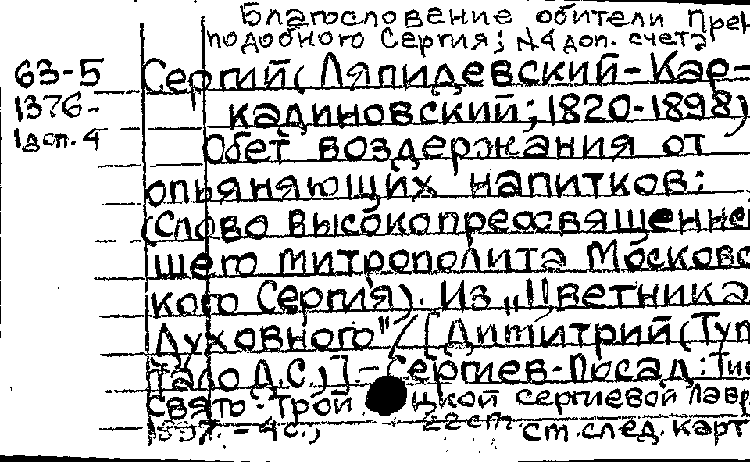 Благословение обители Преп
подобного Сергия; №4 доп. счета
63-5
1376-
1 доп. 4
Сергий (Ляпидевский-Кар-
кадиновский; 1820-1898)
Обет воздержания от
опьяняющих напитков:
(Слово высокопреосвященне
шего митрополита Московс
кого Сергия). Из „Цветника
Духовного"/[Димитрий (Туп
тало Д.С.)].-Сергиев-Посад: Тип
свято-Трой цкой сергиевой Лавр
-4с.;
ст.след.карт